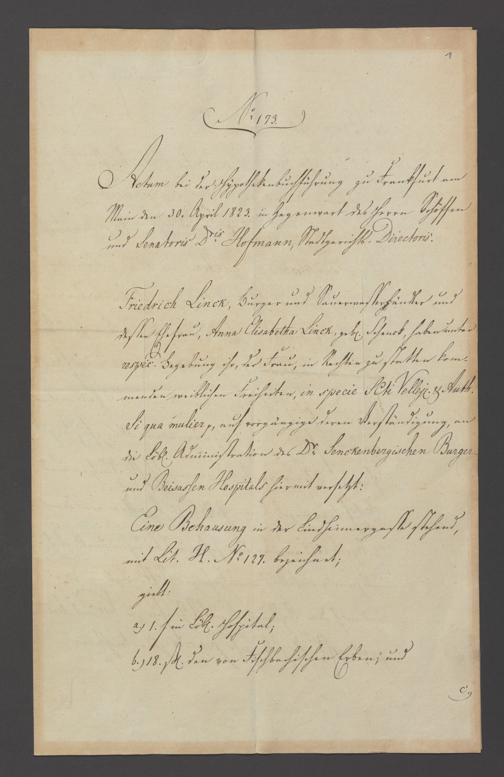 1
No 173.
Actum bei der Hypothekenbuchführung zu Frankfurt am
Main den 30. April 1823. in Gegenwart des Herrn Schöffen
und Senatoris Dris Hofmann, Stadtgerichts-Directoris.
Friedrich Linck, Burger und Sauerwasserhändler und
dessen Ehefrau, Anna Elisabetha Linck, geb. Schenck, haben unter
respec. Begebung ihr, der Frau, in Rechten zu statten kom-
menden weiblichen Freiheiten, in specie SCti Velleji. & Auth.
Si qua mulier, auf vorgängige deren Verständigung, an
die Löbl. Administration des Dr. Senckenbergischen Burger-
und Beisassen Hospitals hiermit versetzt:
Eine Behausung in der Lindheimergasse stehend,
mit Lit. H. No 129. bezeichnet;
giebt:
a) 1. f in Löbl. Hospital;
b.) 18. den von Fischbachischen Erben; und
c)